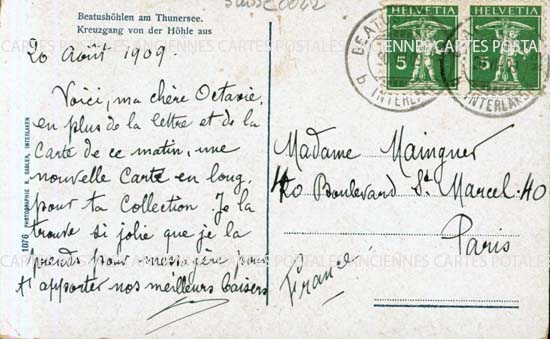 Suisse 0042
Beatushöhlen am Thunersee.
Kreuzgang von der Höhle aus
20 Août 1909.
Voici, ma chère Octavie,
en plus de la lettre et de la
Carte de ce matin, une
nouvelle Carte en long,
pour ta Collection. Je la
trouve si jolie que je la
prends pour messagère pour
t'apporter nos meilleurs baisers
1076 PHOTOGRAPHIE R. GABLER, INTERLAKEN
HELVETIA
HELVETIA
5
5
BEATU
INTERLAKEN
INTERLAKEN
Madame Maingner
40 Boulevard St Marcel 40
Paris
France
ANCIENNES CARTES POSTALES
ANCIENNES CARTES POSTALES